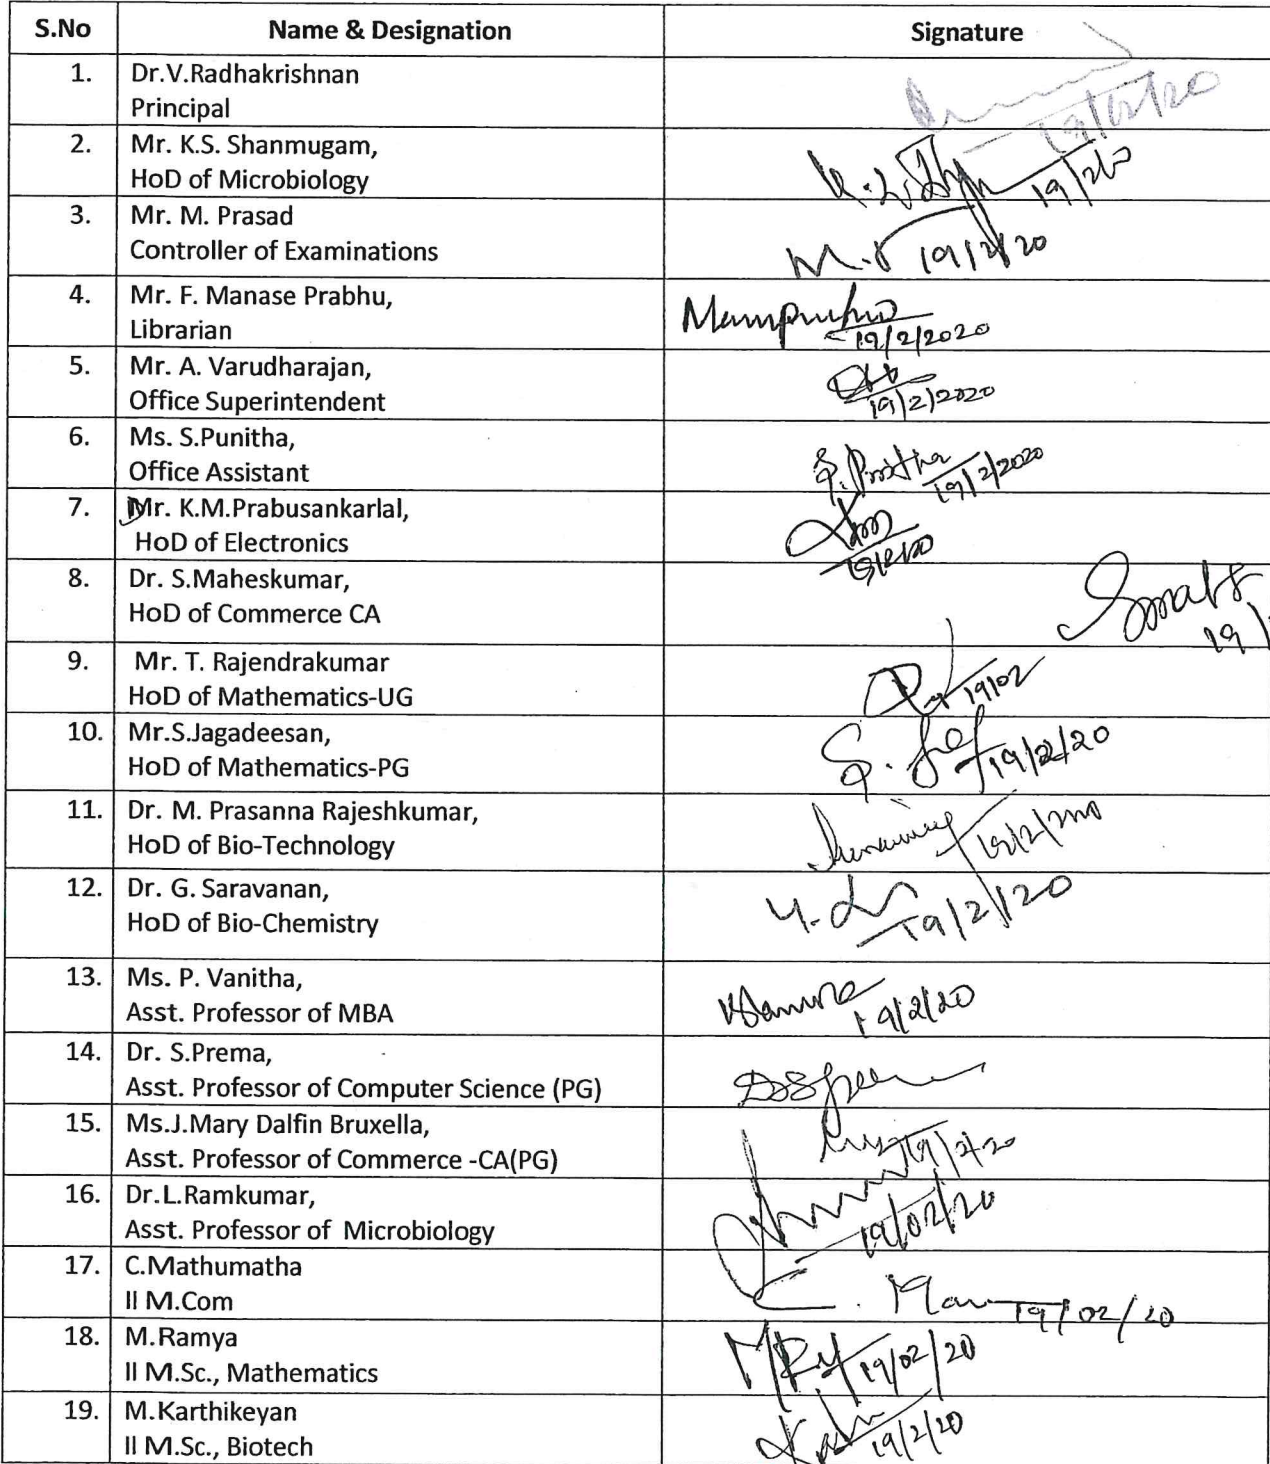 S.No Name & Designation Signature
1. Dr.V.Radhakrishnan
Principal
19/02/20
2. Mr. K.S. Shanmugam,
HoD of Microbiology
19/2/20
3. Mr. M. Prasad
Controller of Examinations
19/2/20
4. Mr. F. Manase Prabhu,
Librarian
19/2/2020
5. Mr. A. Varudharajan,
Office Superintendent
19/2/2020
6. Ms. S.Punitha,
Office Assistant
19/2/2020
7. Mr. K.M.Prabusankarlal,
HoD of Electronics
19/2/20
8. Dr. S.Maheskumar,
HoD of Commerce CA
19/
9. Mr. T. Rajendrakumar
HoD of Mathematics-UG
19/02
10. Mr.S.Jagadeesan,
HoD of Mathematics-PG
19/2/20
11. Dr. M. Prasanna Rajeshkumar,
HoD of Bio-Technology
19/2/2020
12. Dr. G. Saravanan,
HoD of Bio-Chemistry
19/2/20
13. Ms. P. Vanitha,
Asst. Professor of MBA
19/2/20
14. Dr. S.Prema,
Asst. Professor of Computer Science (PG)
15. Ms.J.Mary Dalfin Bruxella,
Asst. Professor of Commerce -CA(PG)
19/2/20
16. Dr.L.Ramkumar,
Asst. Professor of Microbiology
19/02/20
17. C.Mathumatha
II M.Com
19/02/20
18. M.Ramya
II M.Sc., Mathematics
19/02/20
19. M.Karthikeyan
II M.Sc., Biotech
19/2/20